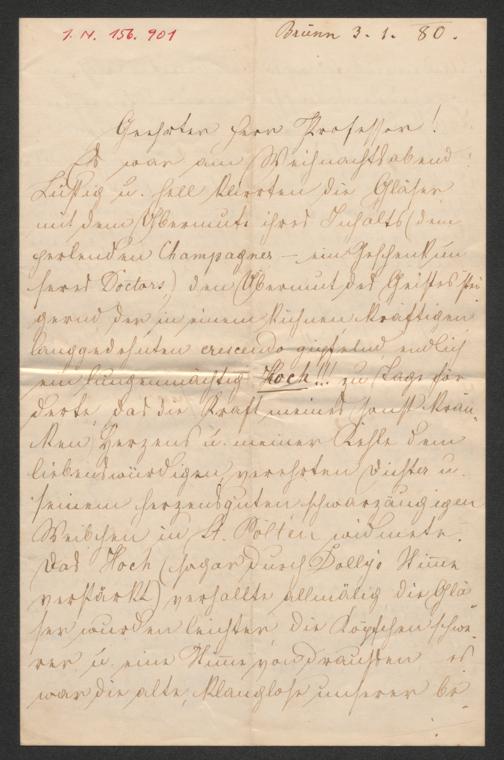 I. N. 156.901
Brünn 3. 1. 80.
Geehrter Herr Professor!
Es war am Weihnachtsabend.
Lustig u. hell klirrten die Gläser
mit dem Übermute ihres Inhalts (dem
perlenden Champagner – ein Geschenk un
seres Doctors) den Übermut des Geistes stei
gernd der in einem kühnen kräftigen
langgedehnten crescendo gipfelnd endlich
ein lungenmächtig Hoch!!! zu Tage för
derte, das die Kraft meines sonst kran
ken Herzens u. meiner Kehle dem
liebenswürdigen verehrten Dichter u.
seinem herzensguten schwarzäugigen
Weibchen in St. Pölten widmete.
Das Hoch (sogar durch Dolly's Stimme
verstärkt) verhallte allmätig die Glä
ser wurden leichter die Köpfchen schwe
rer u. eine Stimme von draußen es
war die alte, klanglose unserer be